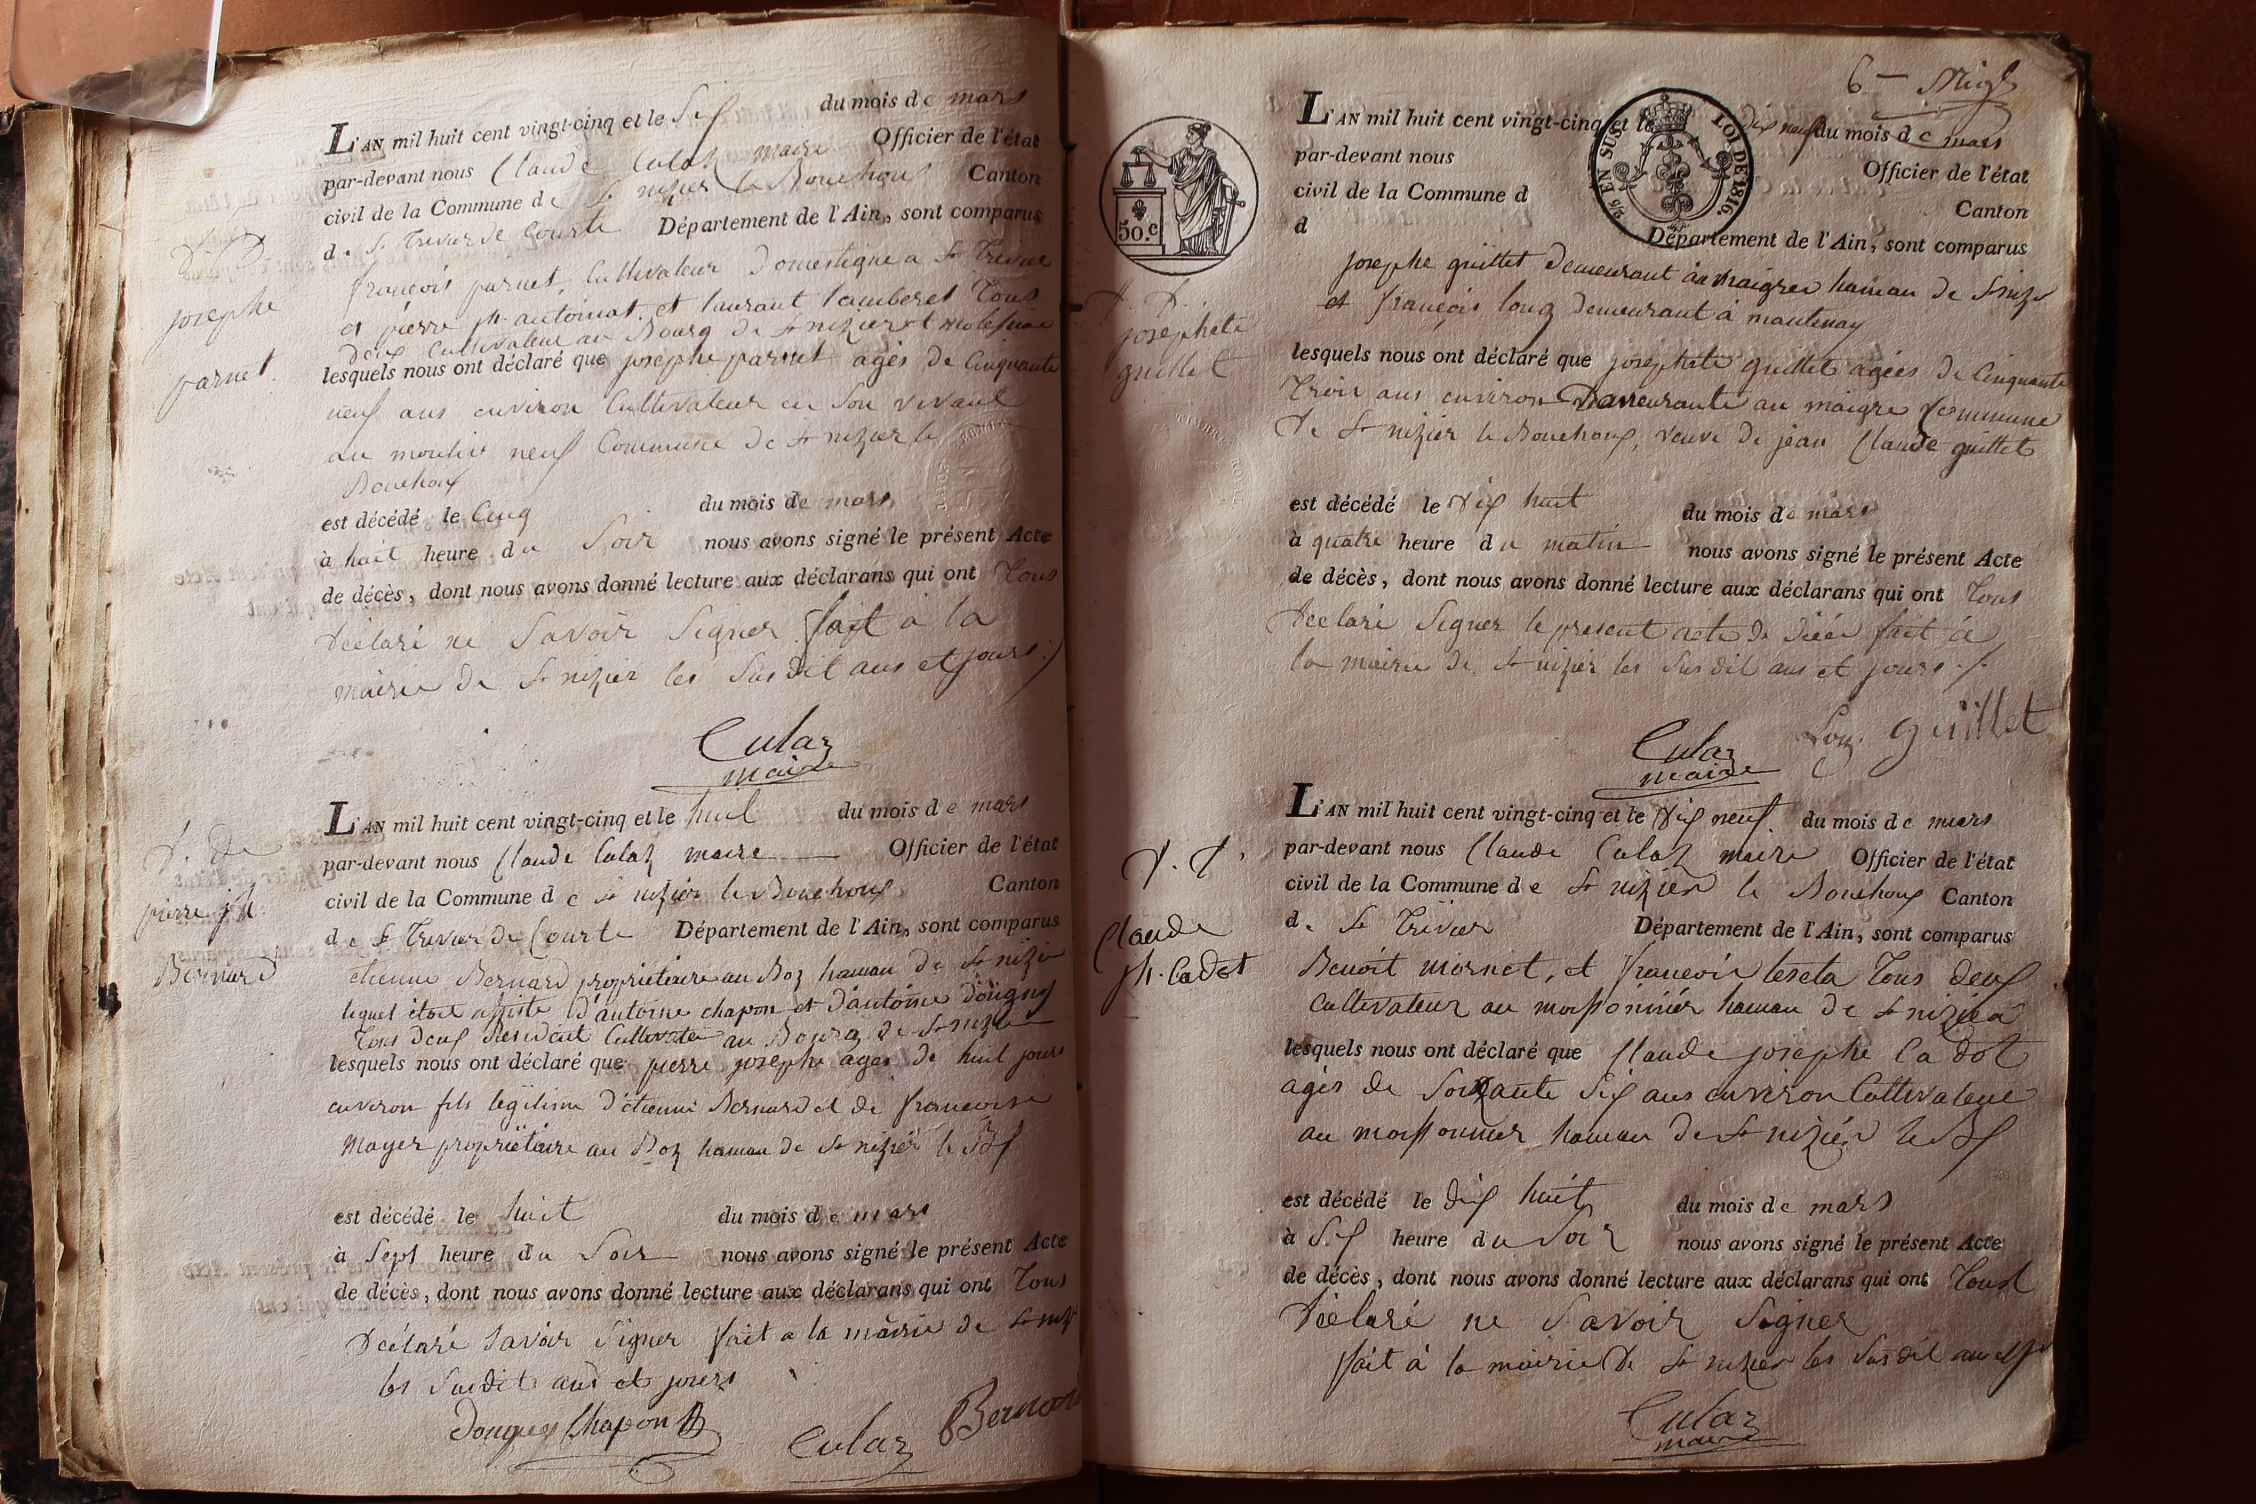 L'AN mil huit cent vingt-cinq et le Six du mois de mars
par-devant nous Claude Culaz maire Officier de l'état
civil de la Commune de St nizier le Bouchoux Canton
de St Trivier de Courte Département de l'Ain, sont comparus
françois parnet, Cultivateur Domestique a St Trivier
et pierre jh. antoinat et laurant tamberet Tous
Deux Cultivateur au Bourg de St nizier et
lesquels nous ont déclaré que josephe parnet agés de Cinquante
neuf ans environ Cultivateur en Son vivant
au moulin neuf Commune de St nizier le
Bouchoux
est décédé le Cinq du mois de mars
à huit heure du Soir nous avons signé le présent Acte
de décès, dont nous avons donné lecture aux déclarans qui ont Tous
Déclaré ne Savoir Signer fait à la
mairie de St nizier les Susdit ans et jours
josephe
parnet
Culaz
maire
L'AN mil huit cent vingt-cinq et le huit du mois de mars
par-devant nous Claude Culaz maire Officier de l'état
civil de la Commune de St nizier le Bouchoux Canton
de St Trivier de Courte Département de l'Ain, sont comparus
etienne Bernard propriétaire au Boz hamau de St nizier
lequel étoit assisté d'antoine chapon et d'antoine
Tous deux Residant Cultivateur au Bourg de St nizier
lesquels nous ont déclaré que pierre josephe agés de huit jours
environ fils légitime d'étienne Bernard et de francoise
Mayer propriétaire au Boz hamau de St nizier le Bx
est décédé le huit du mois de mars
à Sept heure du Soir nous avons signé le présent Acte
de décès, dont nous avons donné lecture aux déclarans qui ont Tous
Déclaré Savoir Signer fait a la mairie de St nizr
les Susdit ans et jours
pierre jh
Bernard
Chapon Culaz Bernard
6
L'AN mil huit cent vingt-cinq et le dix neuf du mois de mars
par-devant nous Officier de l'état
civil de la Commune d Canton
d Département de l'Ain, sont comparus
EN SUS. LOI DE 1816.
50.c
josephe guillet Demeurant au Maigre hamau de St nizr
et françois louz demeurant à mantenay
lesquels nous ont déclaré que josephete guillet agées de Cinquante
Trois ans environ Demeurante au maigre Commune
De St nizier le Bouchoux, veuve de jean Claude guillet
est décédé le Dix huit du mois de mars
à quatre heure du matin nous avons signé le présent Acte
de décès, dont nous avons donné lecture aux déclarans qui ont Tous
Déclaré Signer le present acte de décé fait à
la mairie de St nizier les Susdit ans et jours
D. D.
josephete
guillet
Culaz Louz guillet
maire
L'AN mil huit cent vingt-cinq et le Dix neuf du mois de mars
par-devant nous Claude Culaz maire Officier de l'état
civil de la Commune de St nizier le Bouchoux Canton
de St Trivier Département de l'Ain, sont comparus
Benoît mornet, et françois Tous deux
Cultivateur au hamau de St nizier
lesquels nous ont déclaré que Claude josephe Cadot
agés de Soixante Six ans environ Cultivateur
au hamau de St nizier le Bx
est décédé le dix huit du mois de mars
à Six heure du Soir nous avons signé le présent Acte
de décès, dont nous avons donné lecture aux déclarans qui ont Tous
Déclaré ne Savoir Signer
fait à la mairie de St nizier les Susdit ans et jrs
D. D.
Claude
jh. Cadot
Culaz
maire